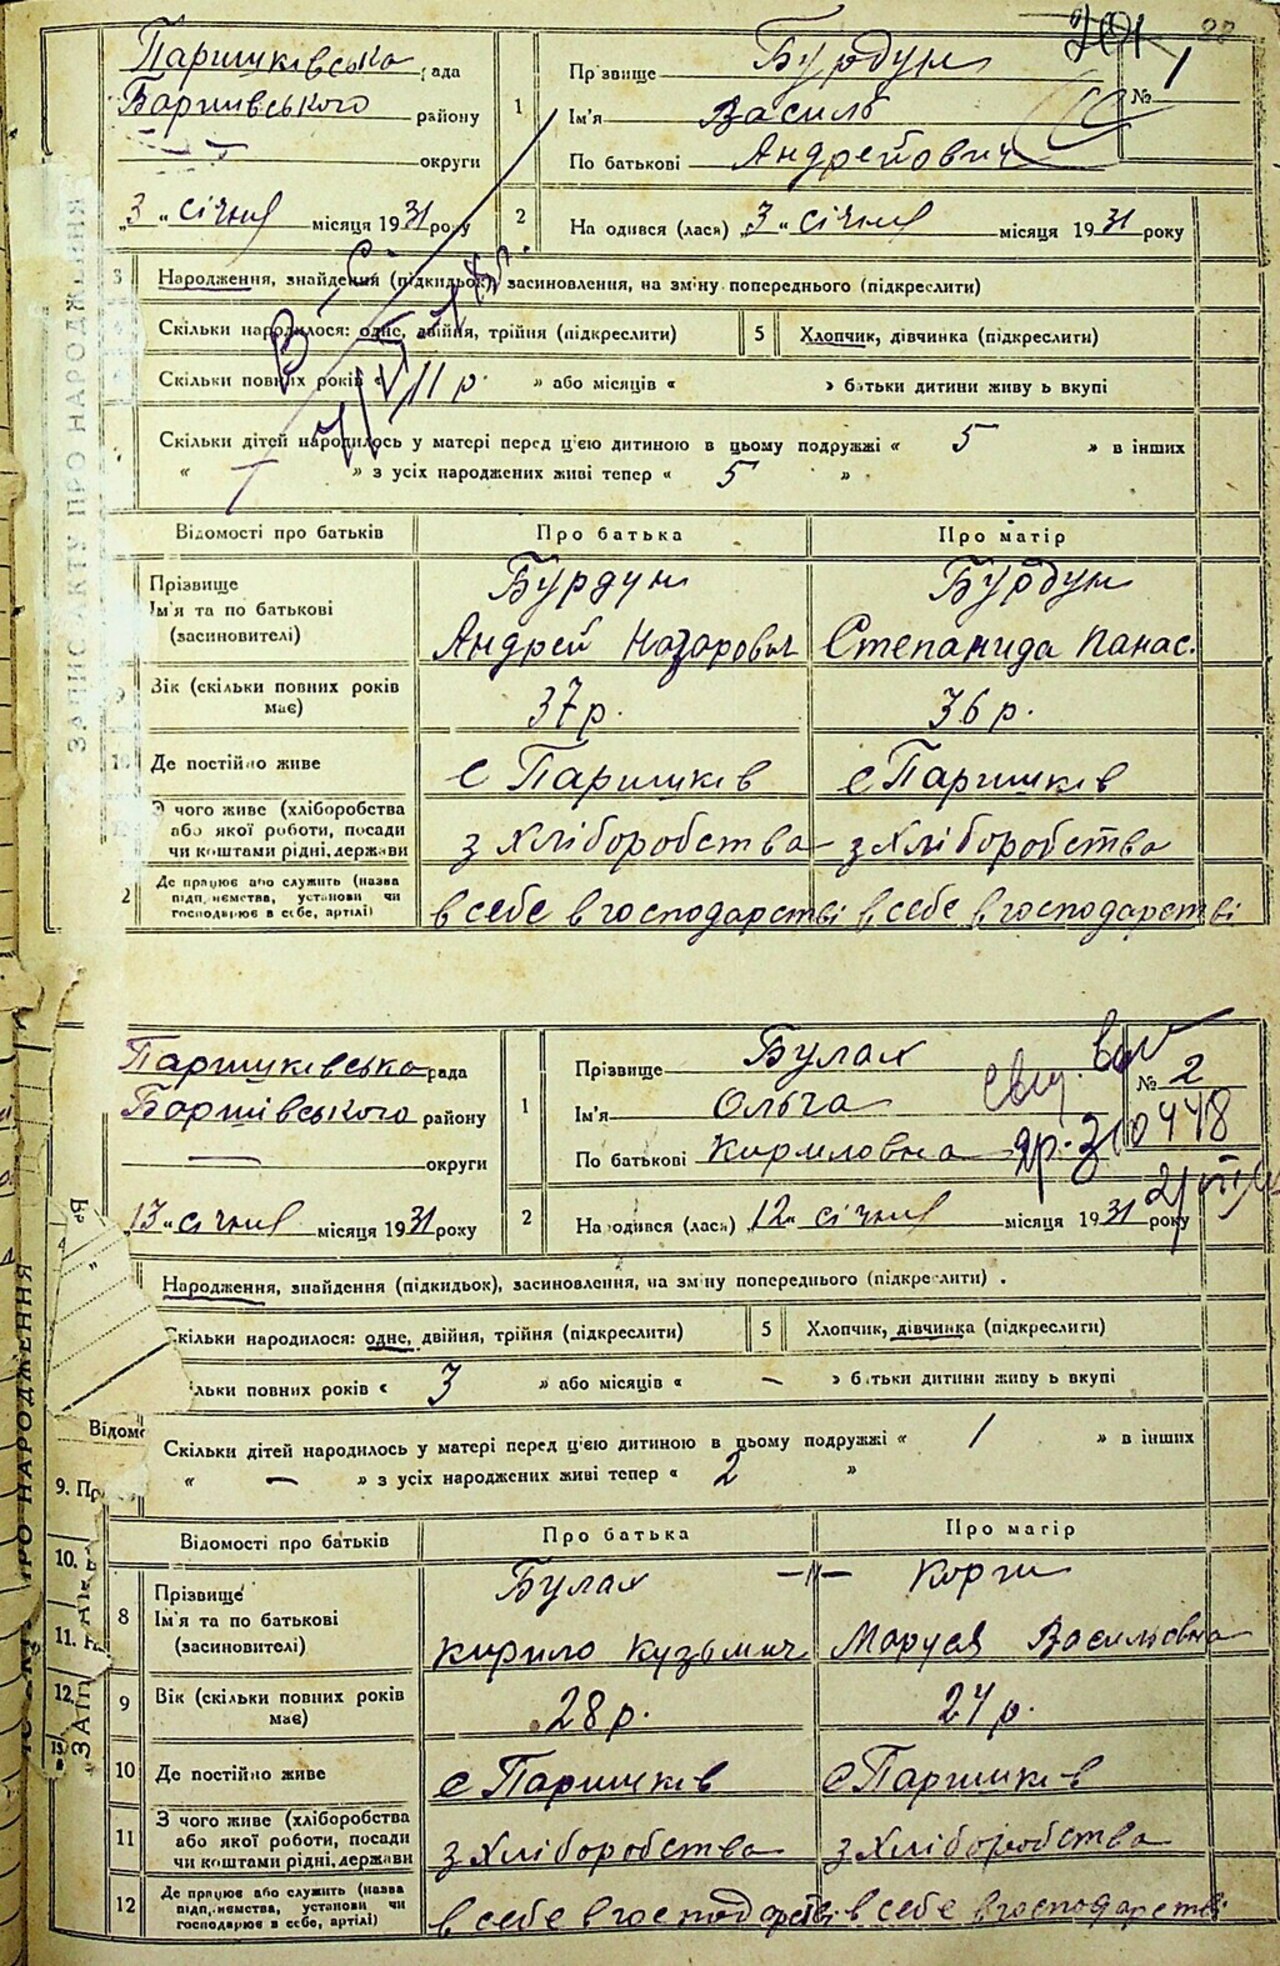 Паришківська рада
Баришівського району
округи
„3„ січня місяця 1931 року
1 Прізвище Бурдун
Ім'я Василь
По батькові Андрейович
№ 1
2 Народився (лася) „3„ січня місяця 1931 року
3 Народження, знайдення (підкидьок), засиновлення, на зміну попереднього (підкреслити)
Скільки народилося: одне, двійня, трійня (підкреслити) 5 Хлопчик, дівчинка (підкреслити)
Скільки повних років « 11 р. » або місяців « » батьки дитини живуть вкупі
Скільки дітей народилось у матері перед ц'єю дитиною в цьому подружжі « 5 » в інших
« — » з усіх народжених живі тепер « 5 »
Відомості про батьків Про батька Про матір
Прізвище Бурдун Бурдун
Ім'я та по батькові
(засиновителі) Андрей Назарович Степанида Панас.
9 Вік (скільки повних років має) 37 р. 36 р.
10 Де постійно живе с Паришків с Паришків
З чого живе (хліборобства
або якої роботи, посади
чи коштами рідні, держави з хліборобства з хліборобства
2 Де працює або служить (назва
підприємства, установи чи
господарює в себе, артілі) в себе в господарстві в себе в господарстві
ЗАПИС АКТУ ПРО НАРОДЖЕННЯ
Паришківська рада
Баришівського району
— округи
„13„ січня місяця 1931 року
1 Прізвище Булах
Ім'я Ольга
По батькові Кириловна
№ 2
2 Народився (лася) „12„ січня місяця 1931 року
Народження, знайдення (підкидьок), засиновлення, на зміну попереднього (підкреслити).
Скільки народилося: одне, двійня, трійня (підкреслити) 5 Хлопчик, дівчинка (підкреслити)
льки повних років « 3 » або місяців « — » батьки дитини живуть вкупі
Скільки дітей народилось у матері перед ц'єю дитиною в цьому подружжі « 1 » в інших
« — » з усіх народжених живі тепер « 2 »
Відомості про батьків Про батька Про матір
8 Прізвище Булах —"— Корж
Ім'я та по батькові
(засиновителі) Кирило Кузьмич Маруся Васильовна
9 Вік (скільки повних років має) 28 р. 24 р.
10 Де постійно живе с Паришків с Паришків
11 З чого живе (хліборобства
або якої роботи, посади
чи коштами рідні, держави з хліборобства з хліборобства
12 Де працює або служить (назва
підприємства, установи чи
господарює в себе, артілі) в себе в господарстві в себе в господарстві